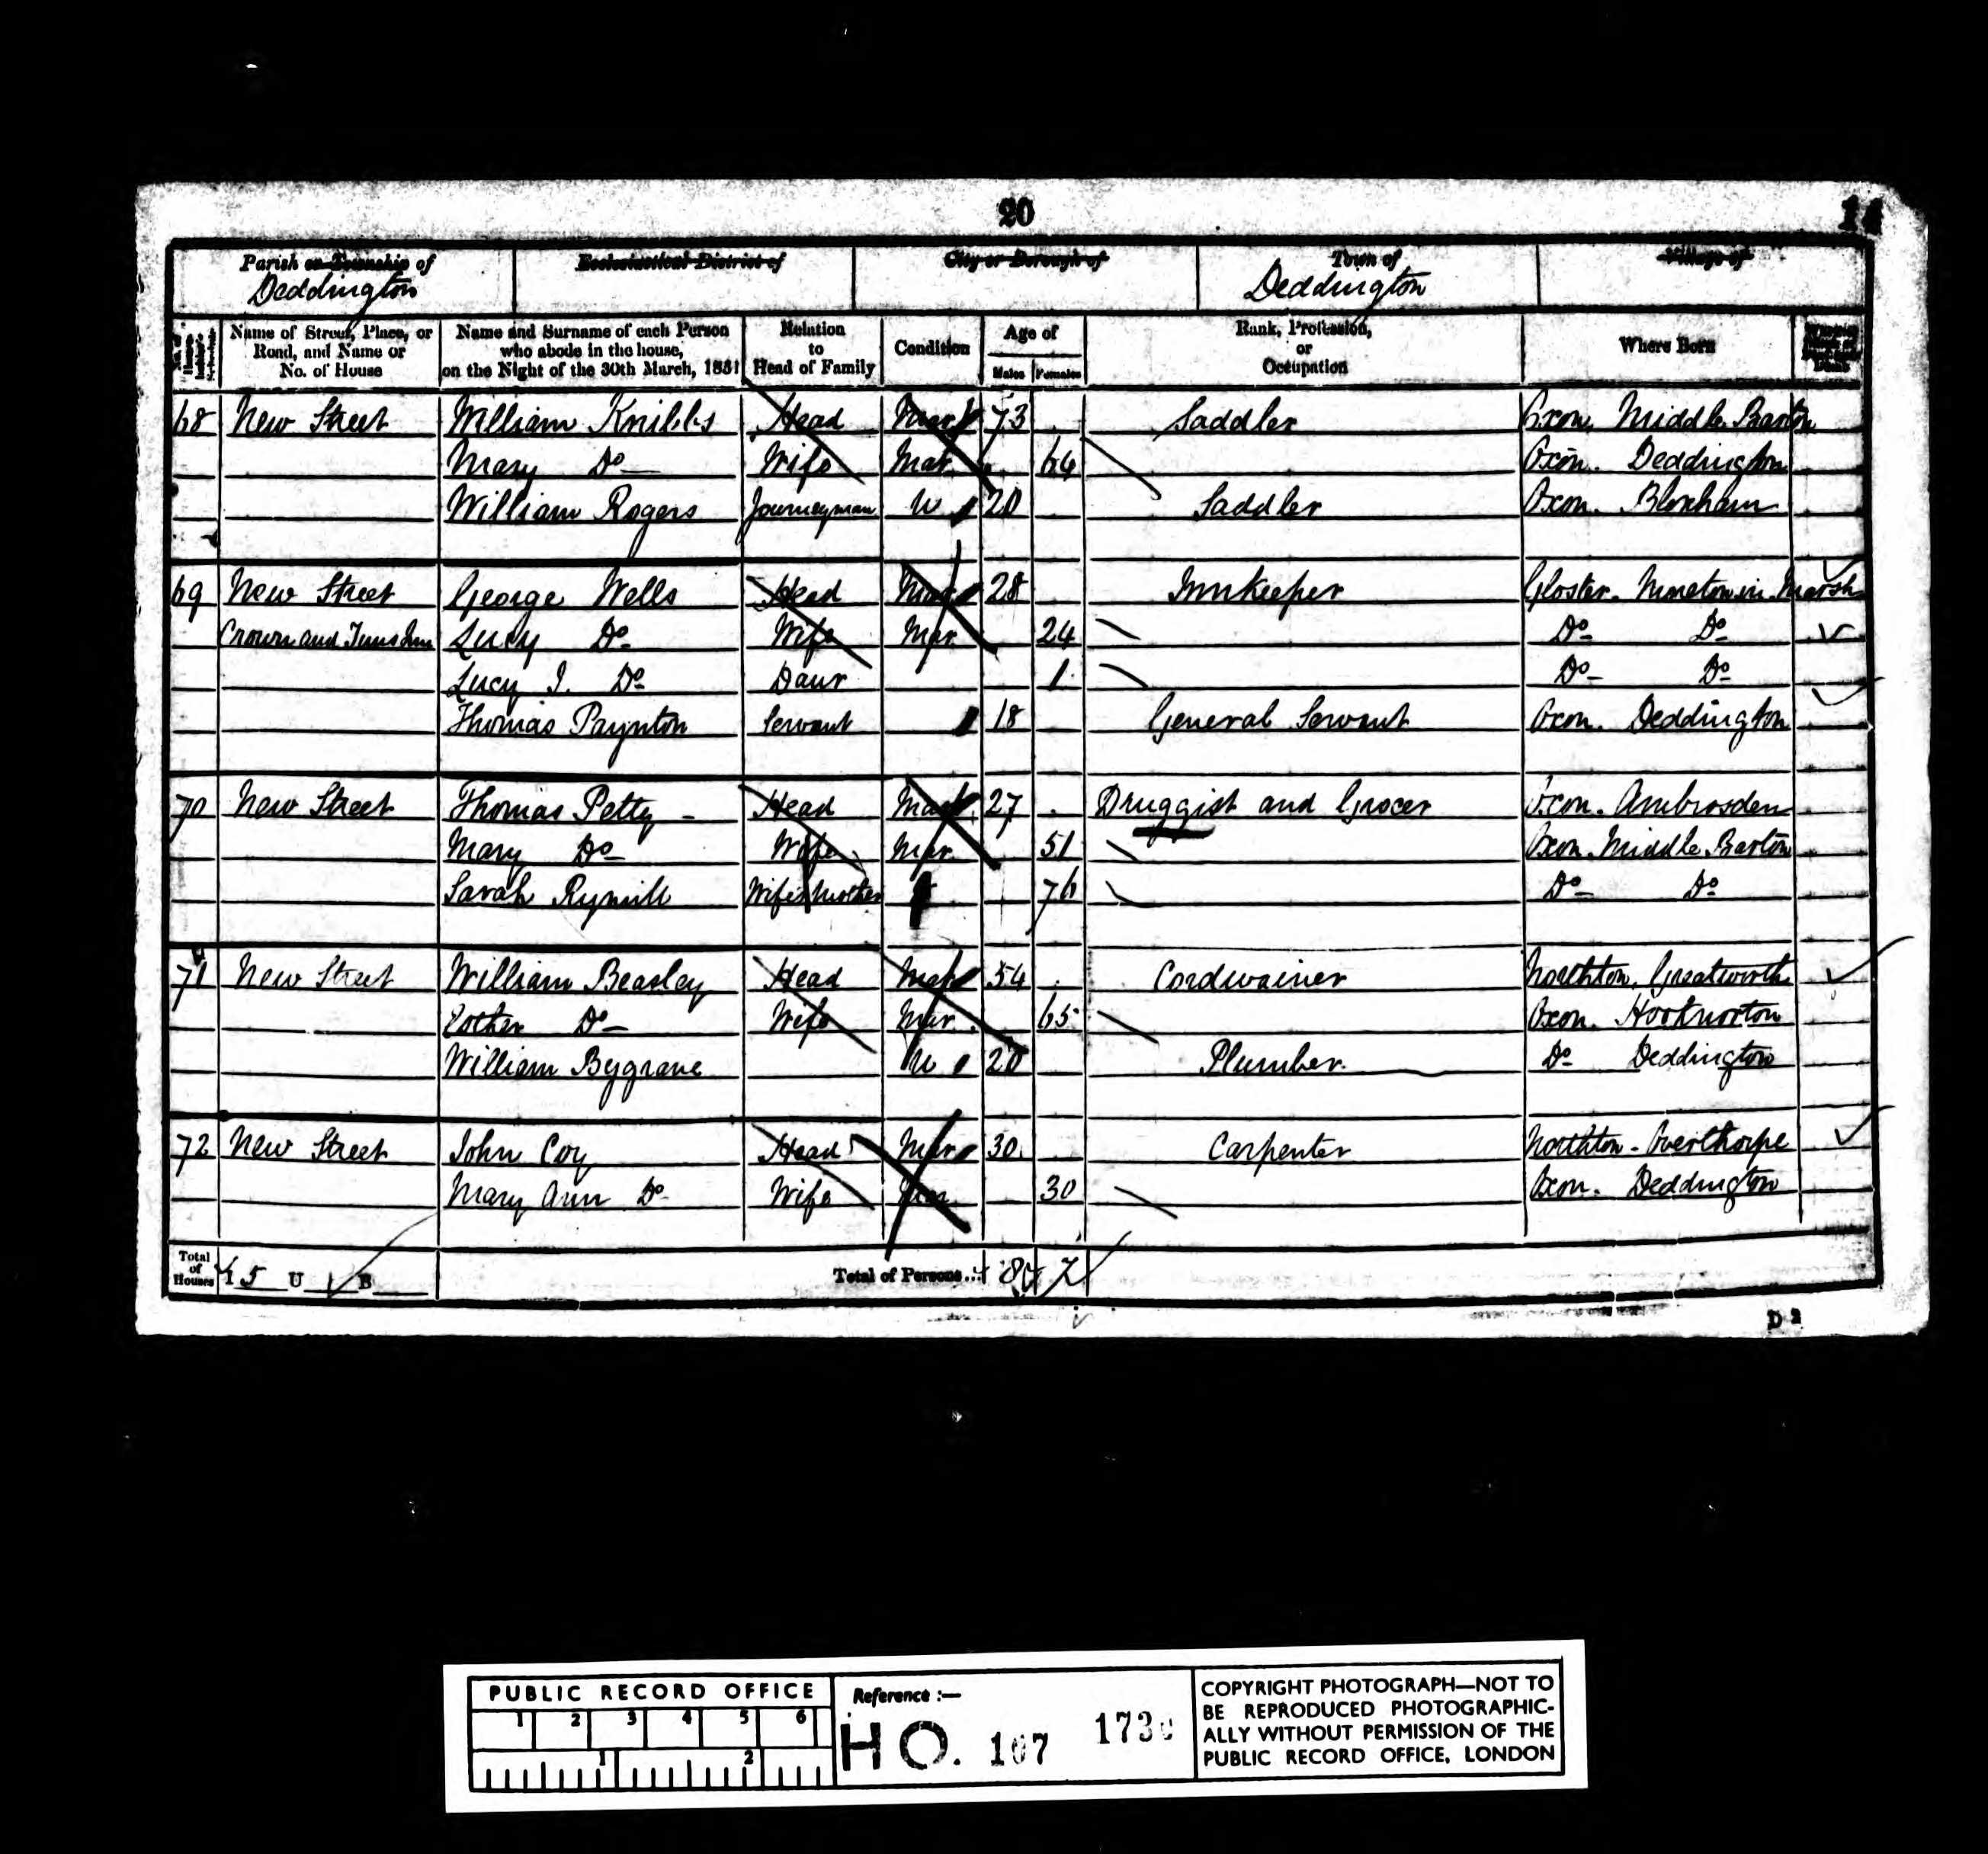 20
Parish or Township of Ecclesiastical District of City or Borough of Town of Village of
Deddington Deddington
Name of Street, Place, or Road, and Name or No. of House
Name and Surname of each Person who abode in the house, on the Night of the 30th March, 1851
Relation to Head of Family
Condition
Age of
Males Females
Rank, Profession, or Occupation
Where Born
68 New Street William Knibbs Head Mar 73 Saddler Oxon. Middle Barton
Mary Do Wife Mar 64 Oxon. Deddington
William Rogers Journeyman U 20 Saddler Oxon. Bloxham
69 New Street George Wells Head Mar 28 Innkeeper Gloster. Moreton in Marsh
Crown and Tuns Inn Lucy Do Wife Mar 24 Do Do
Lucy J. Do Daur 1 Do Do
Thomas Paynton Servant 18 General Servant Oxon. Deddington
70 New Street Thomas Petty Head Mar 27 Druggist and Grocer Oxon. Ambrosden
Mary Do Wife Mar 51 Oxon. Middle Barton
Sarah Rymill Wife's Mother 76 Do Do
71 New Street William Beasley Head Mar 54 Cordwainer Northton. Greatworth
Esther Do Wife Mar 65 Oxon. Hooknorton
William Bygrave U 20 Plumber Do Deddington
72 New Street John Coy Head Mar 30 Carpenter Northton - Overthorpe
Mary Ann Do Wife Mar 30 Oxon. Deddington
Total of Houses I 5 U B Total of Persons... 8 7
D 2
PUBLIC RECORD OFFICE
1 2 3 4 5 6
1 2
Reference :—
HO. 107 173
COPYRIGHT PHOTOGRAPH—NOT TO
BE REPRODUCED PHOTOGRAPHIC-
ALLY WITHOUT PERMISSION OF THE
PUBLIC RECORD OFFICE, LONDON